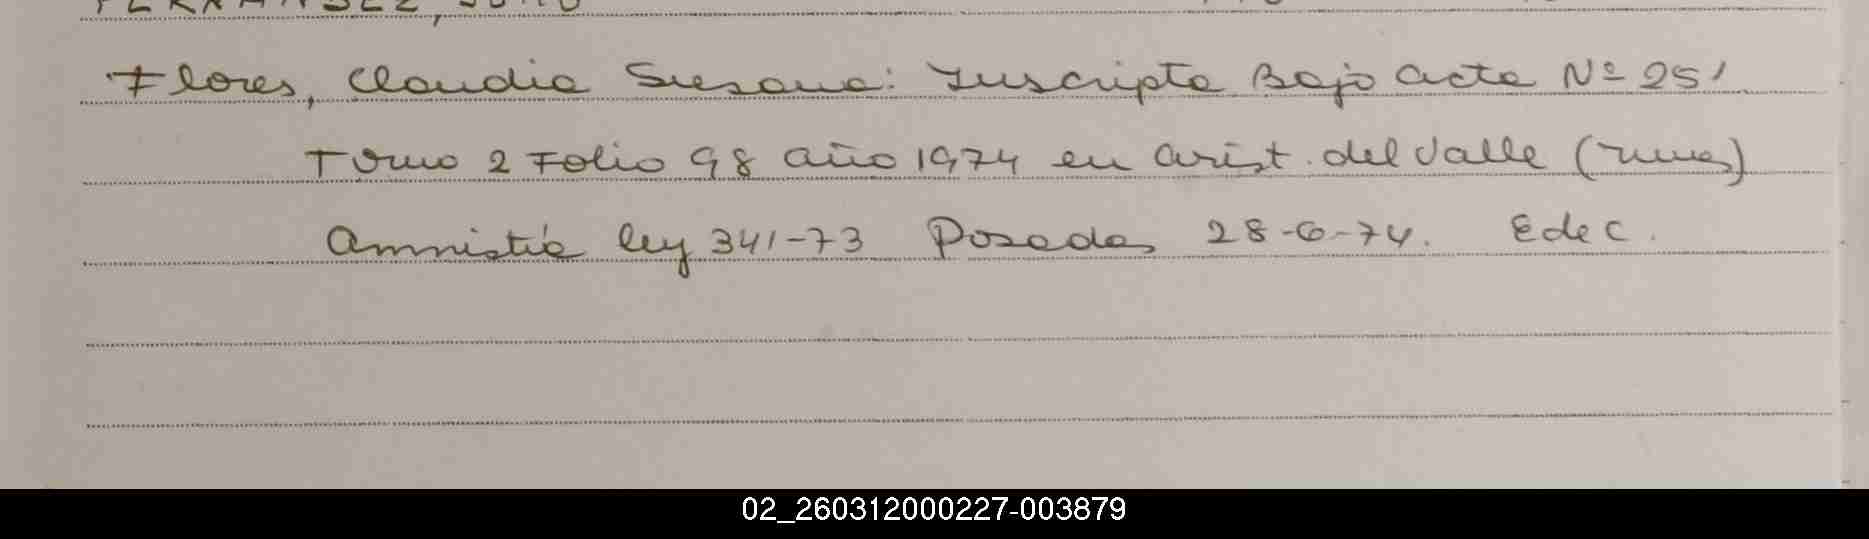 Flores, Claudia Susana: Inscripta Bajo acta Nº 251
Tomo 2 Folio 98 año 1974 en Arist. del Valle (mnes)
Amnistía ley 341-73 Posadas 28-6-74. Edec.
02_260312000227-003879